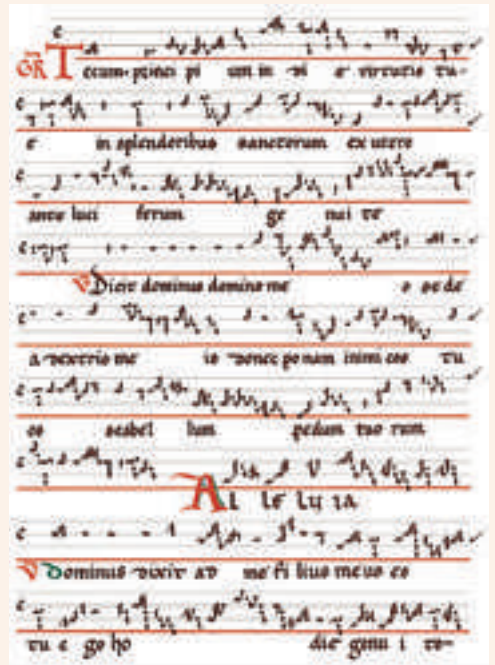 GR Tecum princi pi um in di e virtutis tu-
e in splendoribus sanctorum ex utero
ante luci ferum ge nui te
V Dicit dominus domino me o se de
a dextris me is donec ponam inimi cos tu
os scabel lum pedum tuo rum
AL LE LU IA
V Dominus dixit ad me fi lius meus es
tu e go ho die genu i te-